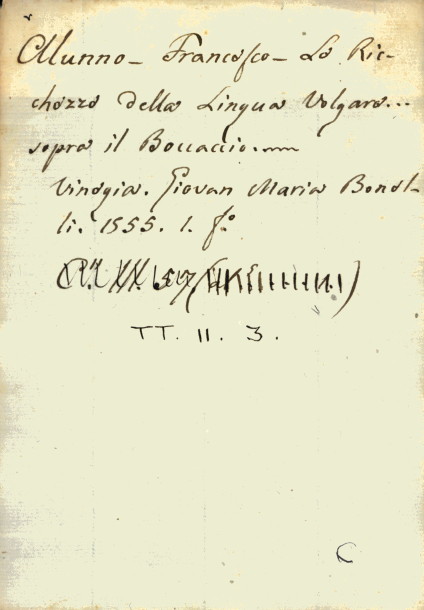 Alunno - Francesco - Le Ric-
chezze della Lingua Volgare...
sopra il Boccaccio.
Vinegia. Giovan Maria Bonel-
li. 1555. 1. fº
TT. 11. 3.
C